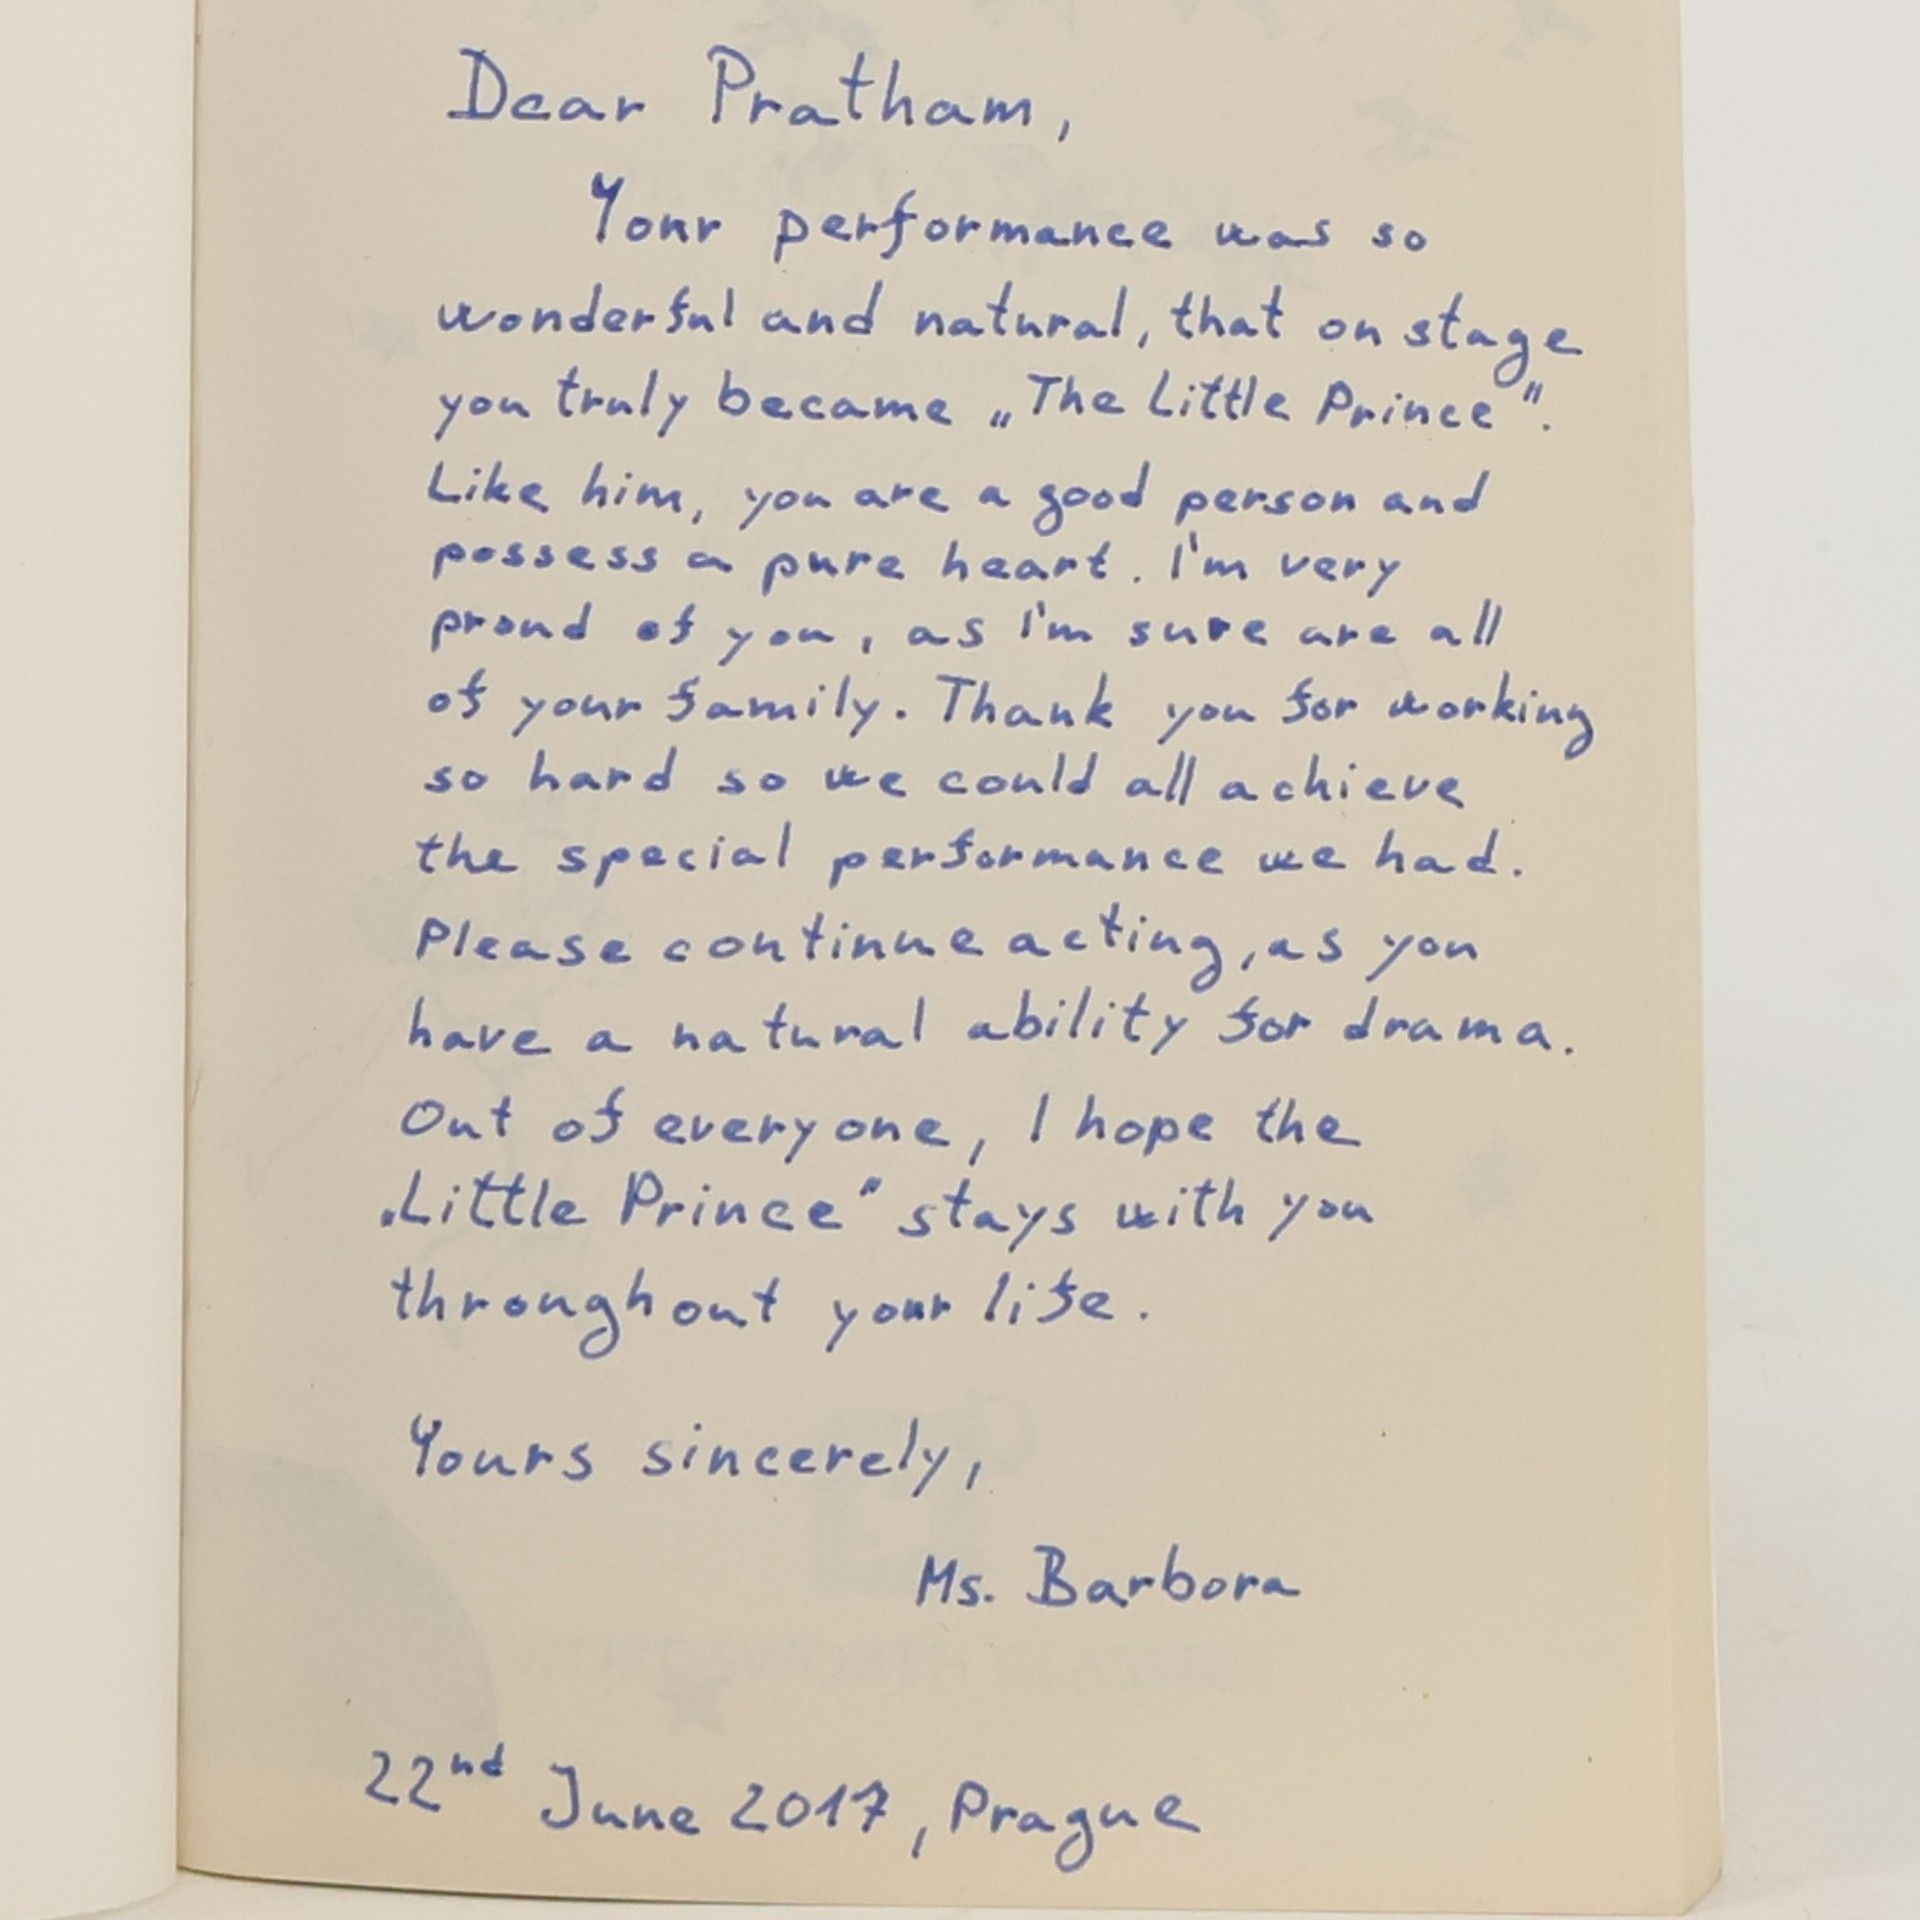 Dear Pratham,
Your performance was so
wonderful and natural, that on stage
you truly became „The Little Prince".
Like him, you are a good person and
possess a pure heart. I'm very
proud of you, as I'm sure are all
of your family. Thank you for working
so hard so we could all achieve
the special performance we had.
Please continue acting, as you
have a natural ability for drama.
Out of everyone, I hope the
„Little Prince" stays with you
throughout your life.
Yours sincerely,
Ms. Barbora
22nd June 2017, Prague